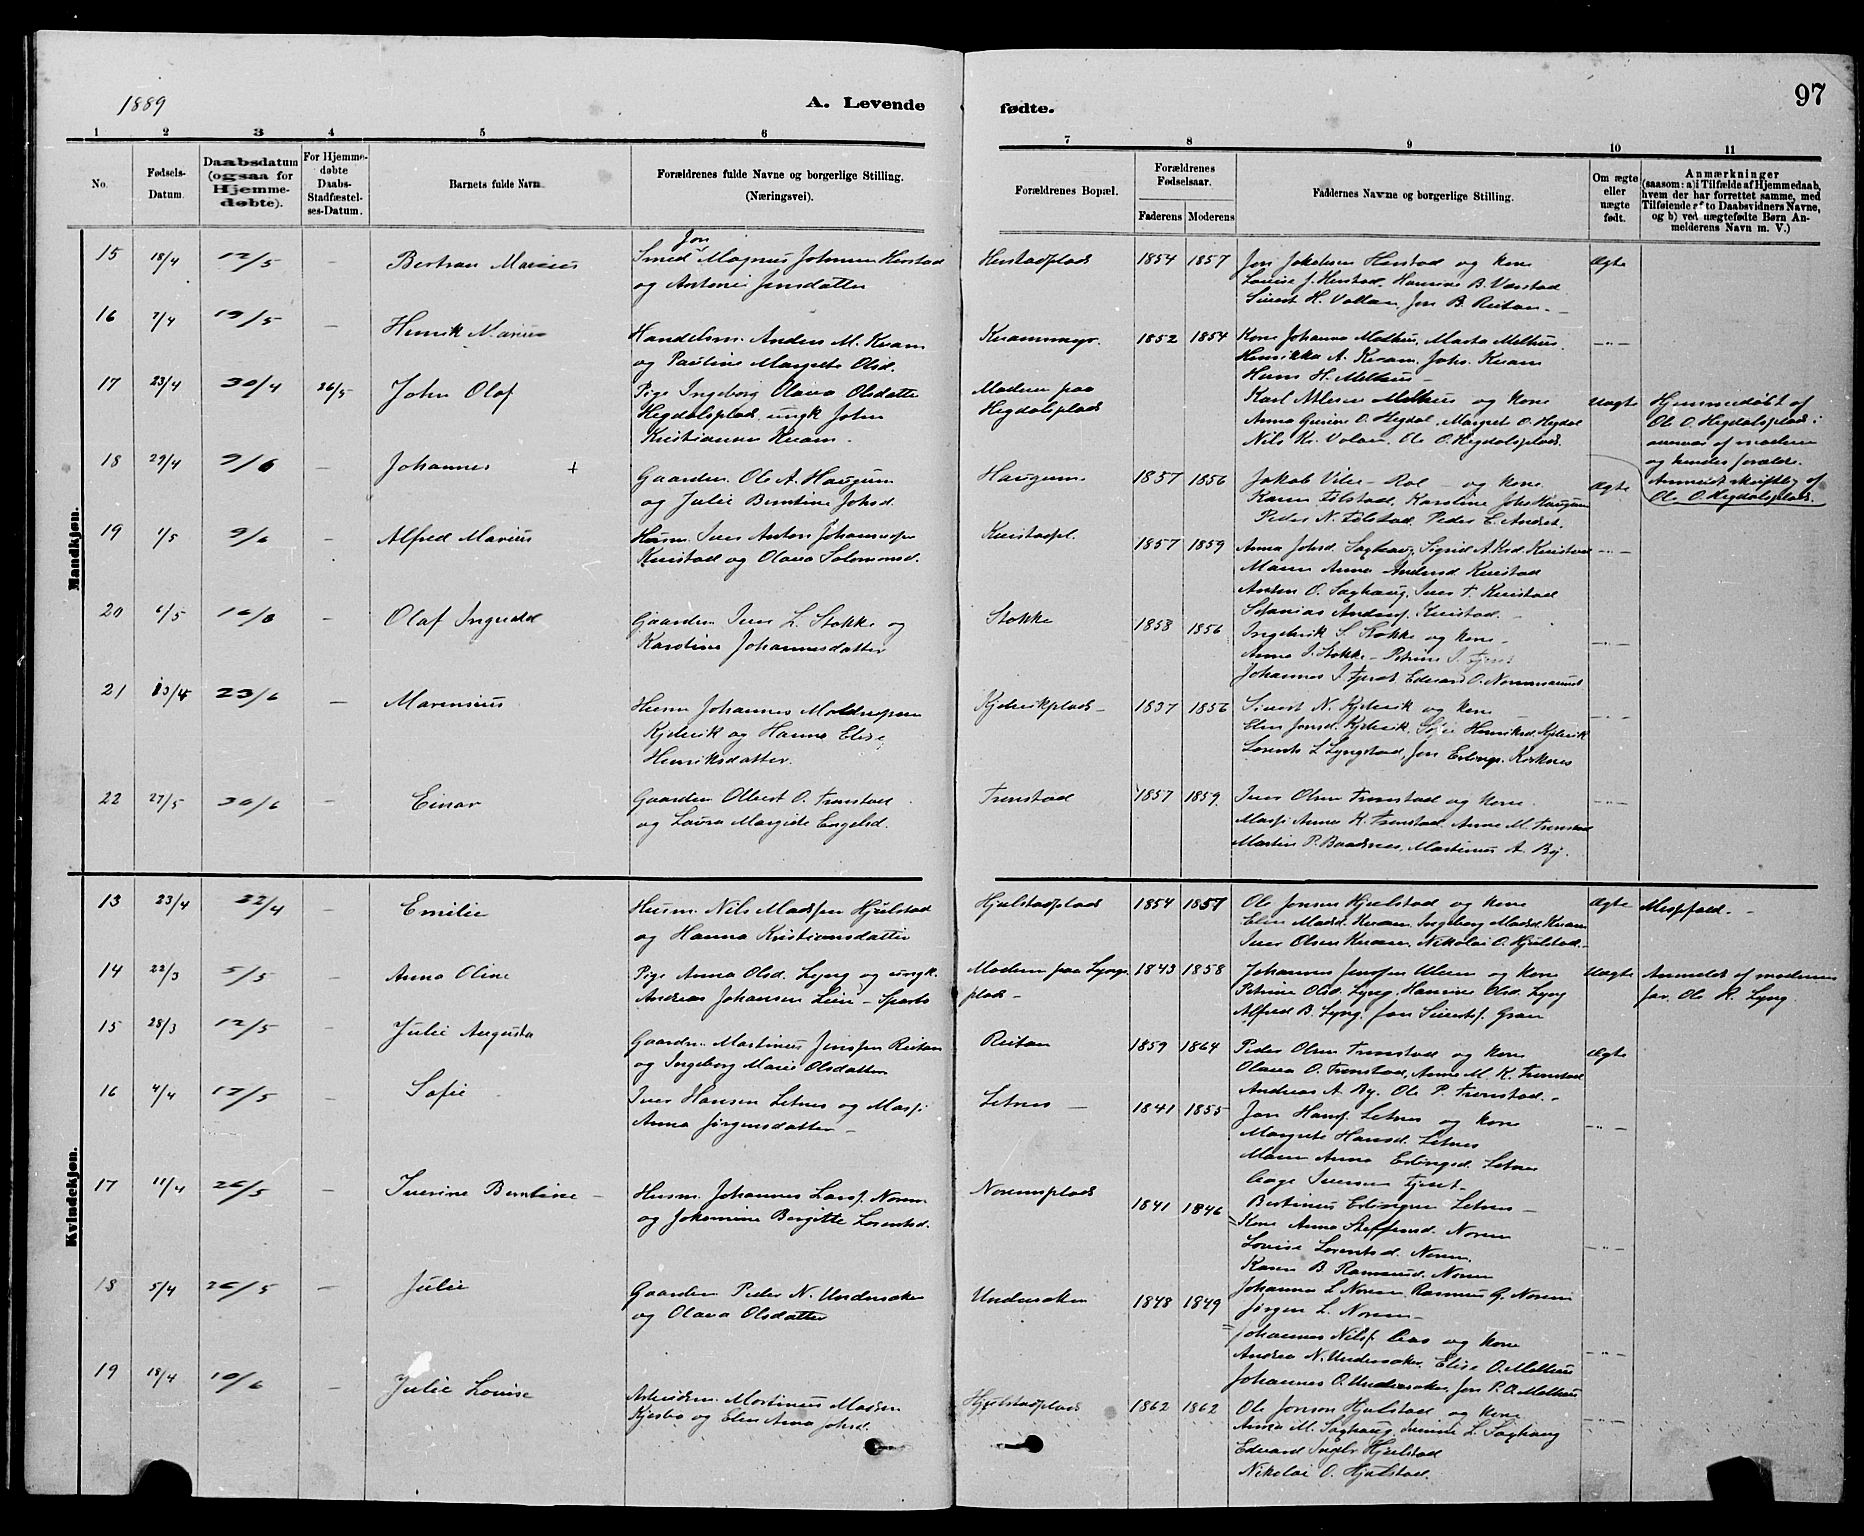 1889
A. Levende
fødte.
97
1 2 3 4 5 6 7 8 9 10 11
No.
Fødsels-
Datum.
Daabsdatum
(ogsaa for
Hjemme-
døbte).
For Hjemme-
døbte
Daabs-
Stadfæstel-
ses-Datum.
Barnets fulde Navn
Forældrenes fulde Navne og borgerlige Stilling.
(Næringsvei).
Forældrenes Bopæl.
Forældrenes
Fødselsaar.
Faderens Moderens
Faddernes Navne og borgerlige Stilling.
Om ægte
eller
uægte
født.
Anmærkninger
(saasom: a) i Tilfælde af Hjemmedaab,
hvem der har forrettet samme, med
Tilføiende af to Daabsvidners Navne,
og b) ved uægtefødte Børn An-
melderens Navn m. V.)
Mandkjøn.
15 18/4 12/5 - Bertran Marius
Jon
Smed Magnus Johnsen Herstad
og Antonie Jensdatter
Herstadplads 1854 1857
Jon Jakobsen Herstad og Kone
Lovise J. Herstad, B. Varstad
Sivert H. Vollan, Jon B. Reitan.
Ægte
16 7/4 19/5 - Henrik Marius
Handelsm. Anders M. Kvam
og Pauline Margrete Olsd.
Kvammyr. 1852 1854
Kone Johanna Melhus, Marta Melhus
Henrikka A. Kvam, Johs. Kvam
H. Melhus -
-„-
17 23/4 30/4 26/5 John Olaf
Pige Ingeborg Olava Olsdatter
Hegdalsplads, ungk. John
Kristiansen Kvam.
Moderen paa
Hegdalsplads
Karl Melhus og Kone
Anna O. Hegdal, Margret O. Hegdal
Nils Kr. Volan, Ole O. Hegdalsplads.
Uægte
Hjemmedøbt af
Ole O. Hegdalsplads i
overvær af moderen
og hendes forældre.
Anmeldt skriftlig af
Ole O. Hegdalsplads.
18 29/4 9/6 - Johannes +
Gaardm. Ole A. Haugum
og Julie Berntine Johsd.
Haugum 1857 1856
Jakob og Kone
Karen Tolstad, Karoline Johs Haugum
Peder N. Tolstad, Peder E. Andret.
Ægte
19 1/5 9/6 - Alfred Marius
Husm. Iver Anton Johannessen
Kvistad og Olava Salomonsd.
Kvistadpl. 1857 1859
Anna Johsd. Saghaug, Sigrid A. Kvistad
Maren Anna Andersd. Kvistad
Anton O. Saghaug, Iver T. Kvistad
Andersf. Kvistad.
-„-
20 6/5 16/6 - Olaf Ingvald
Gaardm. Iver L. Stokke og
Karoline Johannesdatter
Stokke 1858 1856
Ingebrik S. Stokke og Kone
Anna I. Stokke - Petrine I. Tjeset
Johannes I. Edvard O.
-„-
21 13/4 23/6 - Marensius
Husm. Johannes
Kjelvik og Hanna Elise
Henriksdatter.
Kjelvikplads 1837 1856
Sivert N. Kjelvik og Kone
Elen Jonsd. Kjelvik, Sofie Henriksd. Kjelvik
Lorents L. Lyngstad, Jon Erlings. Kirknes
-„-
22 27/5 30/6 - Einar
Gaardm. Olbert O. Tronstad
og Laura Margrete Engelsd.
Tronstad 1857 1859
Iver Olsen Tronstad og Kone
Masji Anna K. Tronstad, Anne M. Tronstad
Martin P. Baadsnes, Martinus A. By.
-„-
Kvindekjøn.
13 23/4 22/4 - Emilie
Husm. Nils Madsen Hjulstad
og Hanna Kristiansdatter
Hjulstadplads 1854 1857
Ole Jonsen Hjulstad og Kone
Elen Madsd. Kvam, Ingeborg Madsd. Kvam
Iver Olsen Kvam, Nikolai O. Hjulstad.
Ægte
14 22/3 5/5 - Anna Oline
Pige Anna Olsd. Lyng og ungk.
Andreas Johansen Lein - Sparbo
Moderen paa Lyngs-
plads - 1843 1858
Johannes Jensen og Kone
Petrine Olsd. Lyng, Olsd. Lyng
Alfred B. Lyng, Jon Sivertsf. Gran
Uægte
Anmeldt af moderens
far Ole K. Lyng.
15 28/3 12/5 - Julie Augusta
Gaardm. Martinus Jensen Reitan
og Ingeborg Marie Olsdatter
Reitan 1859 1864
Peder Olsen Tronstad og Kone
Olava O. Tronstad, Anne M. K. Tronstad
Andreas A. By, Ole P. Tronstad.
Ægte
16 4/4 17/5 - Sofie
Iver Hansen Letnes og Masji
Anna Jørgensdatter -
Letnes 1841 1855
Jon Hansf. Letnes og Kone
Margrete Hansd. Letnes
Maren Anna Erlingsd. Letnes
Aage Iversen
Bertinus Erlingsen Letnes -
-„-
17 11/4 26/5 - Iverine Berntine
Husm. Johannes Larsf. Norem
og Jokomine Bergitte Lorentsd.
Noremsplads 1841 1846
Kone Anna Steffensd. Norem
Lovise Lorentsd. Norem
Karen B. Norem
Johanna L. Norem, Rasmus G. Norem
Jørgen L. Norem
-„-
18 5/4 26/5 - Julie
Gaardm. Peder N. Undersaker
og Olava Olsdatter
Undersaker 1848 1849
Johannes Nilsf. Aas og Kone
Andrea N. Undersaker, Elise O. Melhus
Johannes O. Undersaker, Jon P. O. Melhus
-„-
19 18/4 10/6 - Julie Lovise
Arbeidsm. Martinus Madsen
Kjesbo og Elen Anna Johsd.
Hjulstadplads 1862 1862
Ole Jonson Hjulstad og Kone
Anna M. Saghaug, L. Saghaug
Edvard Hjulstad
Nikolai O. Hjulstad.
-„-